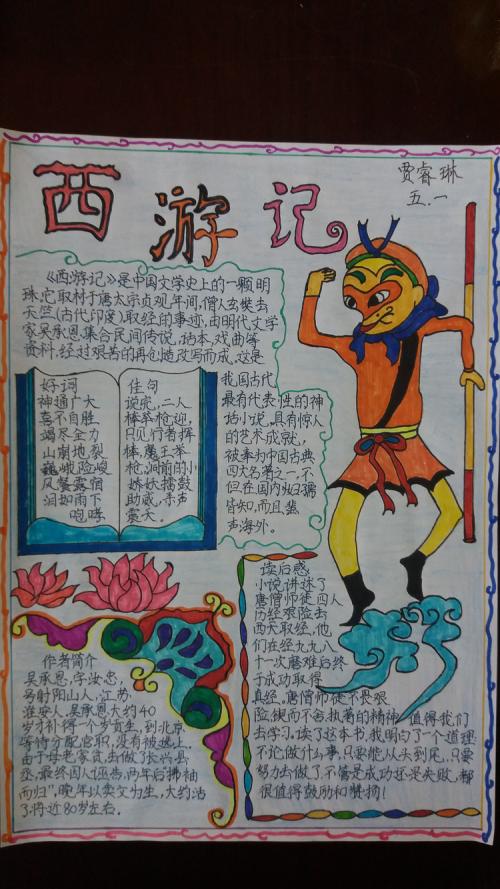 西游记
贾睿琳
五.一
《西游记》是中国文学史上的一颗明
珠,它取材于唐太宗贞观年间,僧人玄奘去
天竺(古代印度)取经的事迹,由明代文学
家吴承恩集合民间传说,话本、戏曲等
资料,经过艰苦的再创造改写而成,这是
我国古代
最有代表性的神
话小说,具有惊人
的艺术成就,
被奉为中国古典
四大名著之一,不
但在国内妇孺
皆知,而且蜚
声海外。
好词
神通广大
喜不自胜
竭尽全力
山崩地裂
巍峨险峻
风餐露宿
泪如雨下
咆哮
佳句
说完,二人
棒举枪迎,
只见行者挥
棒,魔王举
枪,洞前的小
妖擂鼓
助威,赤声
震天。
读后感
小说讲述了
唐僧师徒四人
历经艰险去
西天取经,他
们在经九九八
十一次磨难后终
于成功取得
真经,唐僧师徒不畏艰
险,锲而不舍,执著的精神,值得我们
去学习,读了这本书,我明白了一个道理:
不论做什么事,只要能从头到尾,只要
努力去做了,不管是成功还是失败,都
很值得鼓励和赞扬!
作者简介
吴承恩,字汝忠,
号射阳山人,江苏
淮安人,吴承恩大约40
岁才补得一个岁贡生,到北京
等待分配官职,没有被选上,
由于母老家贫,去做了长兴县
丞,最终因人诬告,两年后“拂袖
而归”,晚年以卖文为生,大约活
了将近80岁左右。